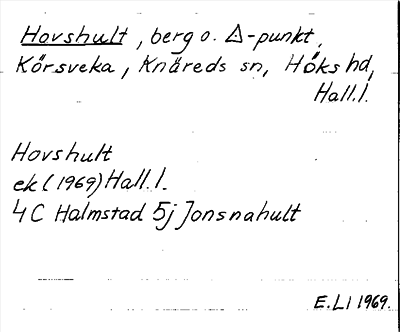 Hovshult, berg o. △-punkt,
Körsveka, Knäreds sn, Höks hd,
Hall. l.
Hovshult
ek (1969) Hall. l.
4 C Halmstad 5j Jonsnahult
E. LI 1969.